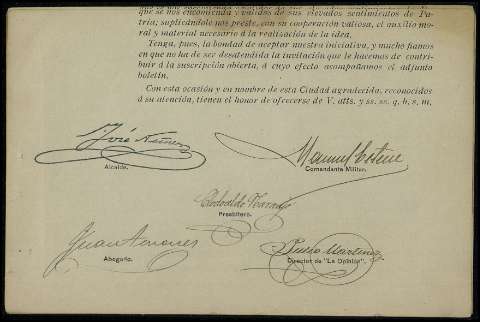 que se nos encomienda y valido de sus elevados sentimientos de Pa-
tria, suplicándole nos preste, con su cooperación valiosa, el auxilio mo-
ral y material necesario á la realización de la idea.
Tenga, pues, la bondad de aceptar nuestra iniciativa, y mucho fiamos
en que no ha de ser desatendida la invitación que le hacemos de contri-
buir á la suscripción abierta, á cuyo efecto acompañamos el adjunto
boletín.
Con esta ocasión y en nombre de esta Ciudad agradecida, reconocidos
á su atención, tienen el honor de ofrecerse de V. atts. y ss. ss. q. b. s. m.
José
Alcalde.
Manuel
Comandante Militar.
Presbítero.
Juan
Abogado.
Pedro Martinez
Director de "La Opinión".